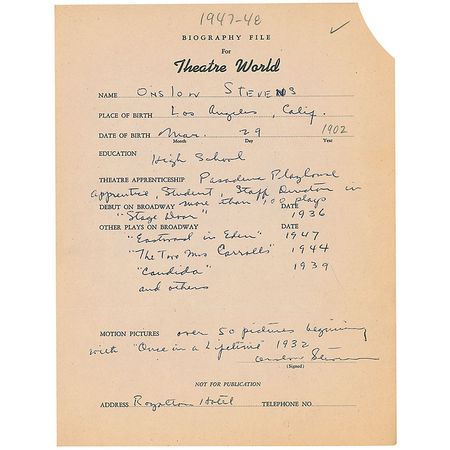 1947-48
BIOGRAPHY FILE
For
Theatre World
NAME Onslow Stevens
PLACE OF BIRTH Los Angeles, Calif.
DATE OF BIRTH Mar. 29 1902
Month Day Year
EDUCATION High School
THEATRE APPRENTICESHIP Pasadena Playhouse
Apprentice, Student, Staff Director in
more than 100 plays
DEBUT ON BROADWAY DATE
"Stage Door" 1936
OTHER PLAYS ON BROADWAY DATE
"Eastward in Eden" 1947
"The Two Mrs Carrolls" 1944
"Candida" 1939
and others
MOTION PICTURES over 50 pictures beginning
with "Once in a Lifetime" 1932
Onslow Stevens
(Signed)
NOT FOR PUBLICATION
ADDRESS Royalton Hotel TELEPHONE NO.